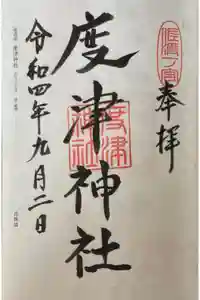 佐渡一ノ宮
奉拝
度津神社
度津神社
令和四年九月二日